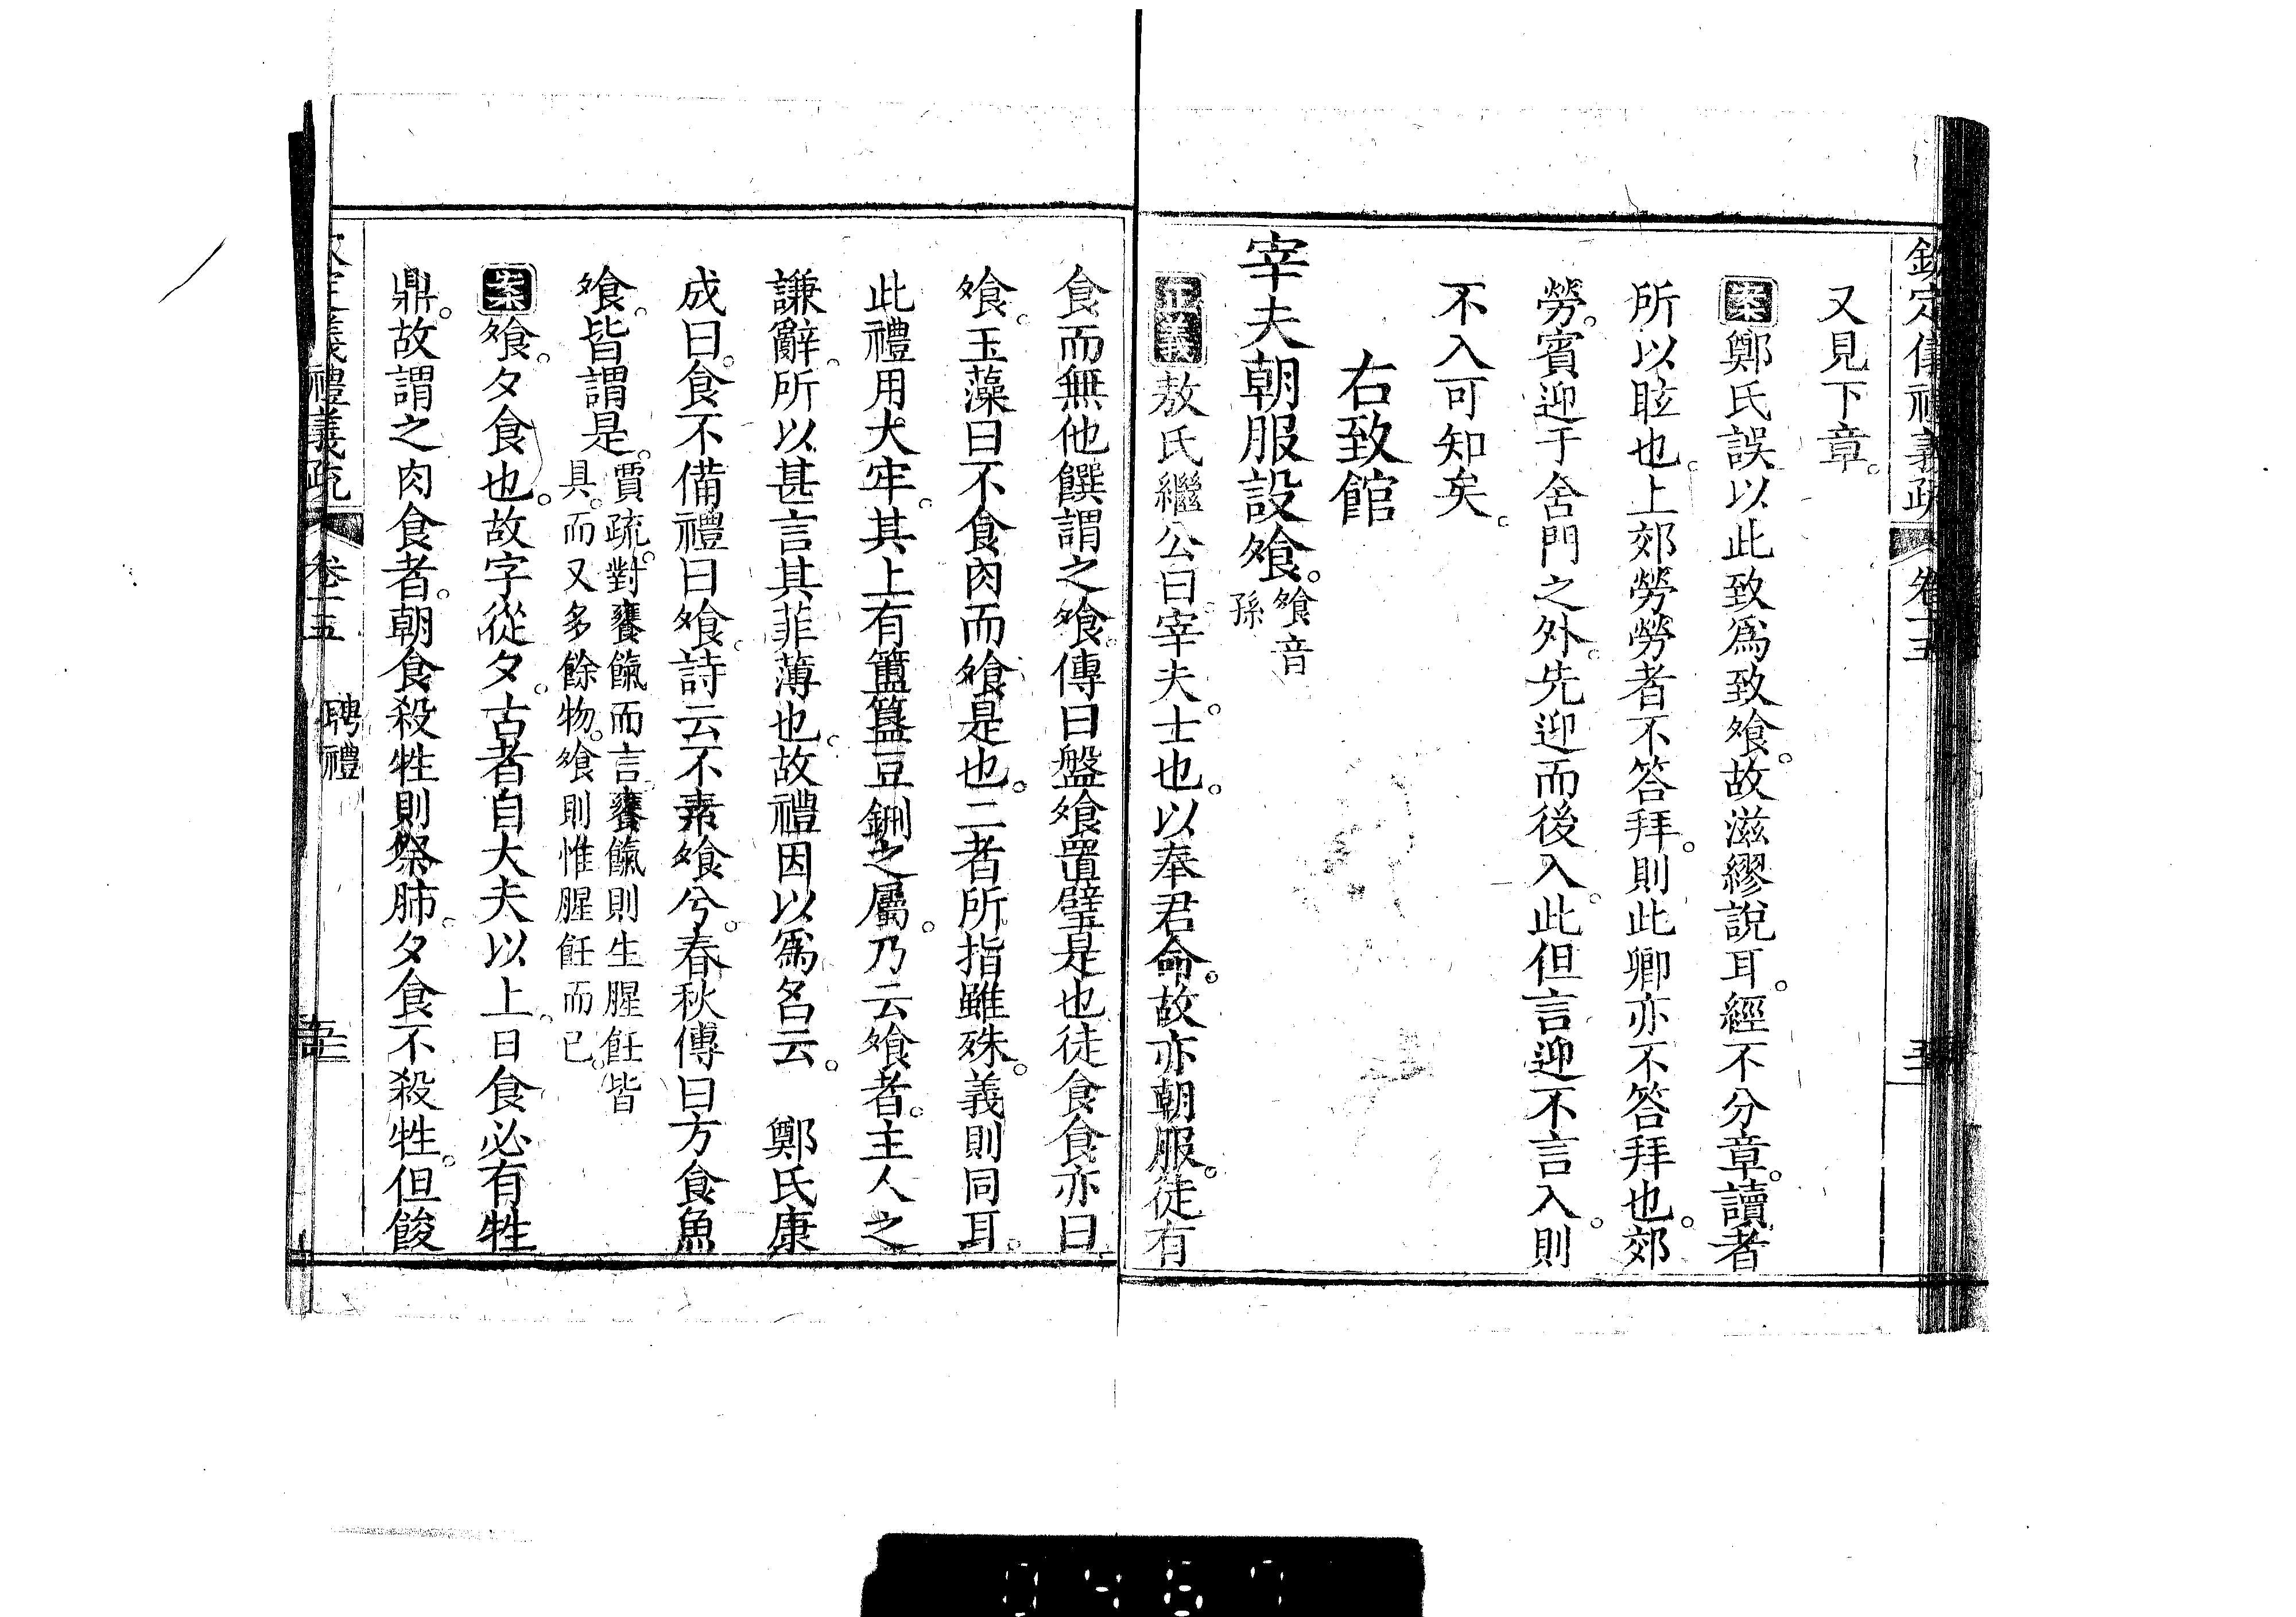 欽定儀禮義疏 卷十五
又見下章。
案鄭氏誤以此致為致飧。故滋繆說耳。經不分章。讀者
所以眩也。上郊勞勞者不答拜。則此卿亦不答拜也。郊
勞。賓迎于舍門之外。先迎而後入。此但言迎不言入。則
不入可知矣。
右致館
宰夫朝服設飧。飧音孫
正義敖氏繼公曰。宰夫。士也。以奉君命。故亦朝服。徒有
食而無他饌謂之飧。傳曰盤飧寘璧是也徒食食亦曰
飧。玉藻曰不食肉而飧是也。二者所指雖殊。義則同耳。
此禮用大牢。其上有簠簋豆鉶之屬。乃云飧者。主人之
謙辭。所以甚言其菲薄也。故禮因以為名云。 鄭氏康
成曰。食不備禮曰飧。詩云不素飧兮。春秋傳曰方食魚
飧。皆謂是。賈疏。對饔餼而言。饔餼則生腥飪皆
具。而又多餘物。飧則惟腥飪而已。
案飧。夕食也。故字從夕。古者自大夫以上。日食必有牲
鼎。故謂之肉食者。朝食殺牲則祭肺。夕食不殺牲。但餕
義禮義疏 卷十五 聘禮